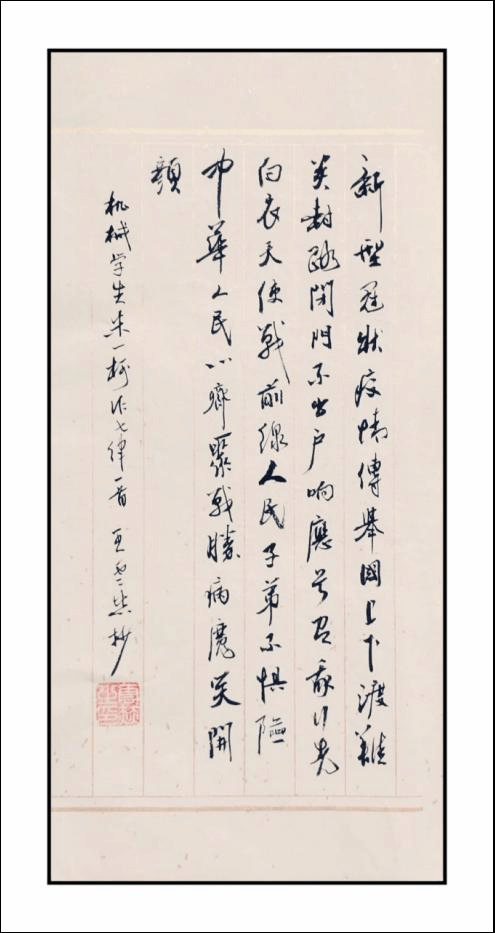 新型冠狀疫情傳舉國上下渡難
关封路閉門不出户响應号召我行先
白衣天使戰前線人民子弟不惧險
中華人民心齊聚戰勝病魔笑開
顏
机械学生一柯作七律一首 王抄